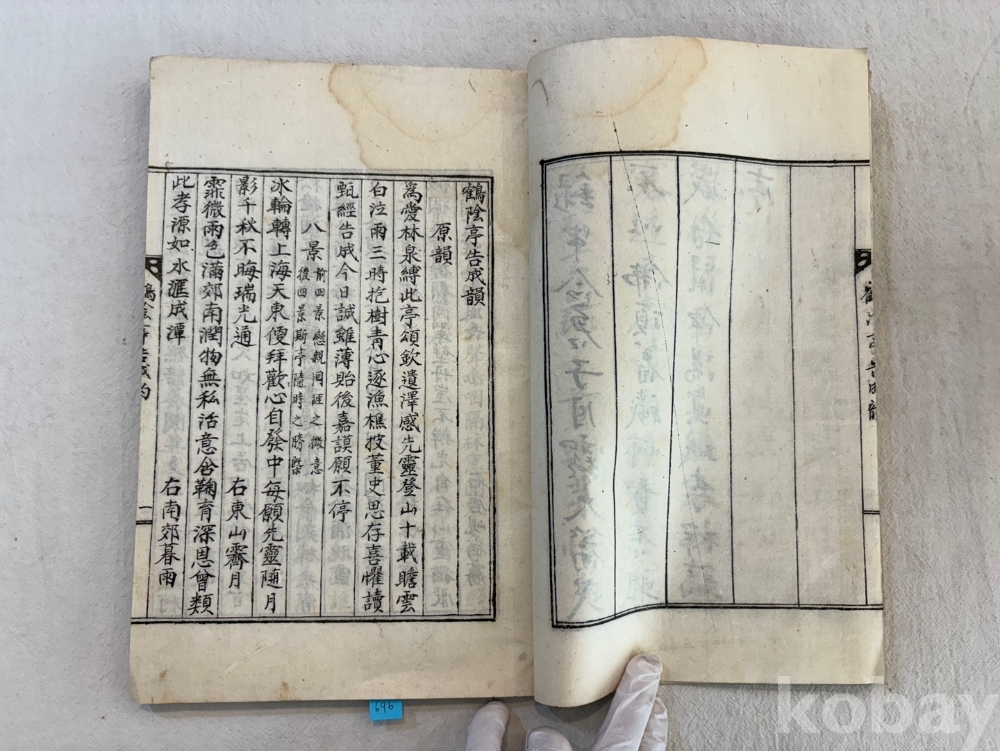 鶴陰亭告成韻
鶴陰亭告成韻
原韻
爲愛林泉縛此亭頌欽遺澤感先靈登山十載瞻雲
白泣雨三時抱樹靑心逐漁樵披董史思存喜懼讀
甄經告成今日誠雖薄貽後嘉謨願不停
八景
前四景懸親同涯之微意
後四景斯亭隨時之勝槩
氷輪轉上海天東便拜歡心自發中每願先靈隨月
影千秋不晦瑞光通 右東山霽月
霢微雨色滿郊南潤物無私活意含鞠育深恩曾類
此孝源如水滙成潭 右南郊暮雨
696
kobay